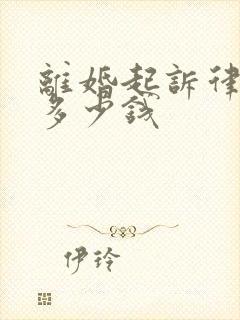 離婚起訴律
多少錢
伊玲